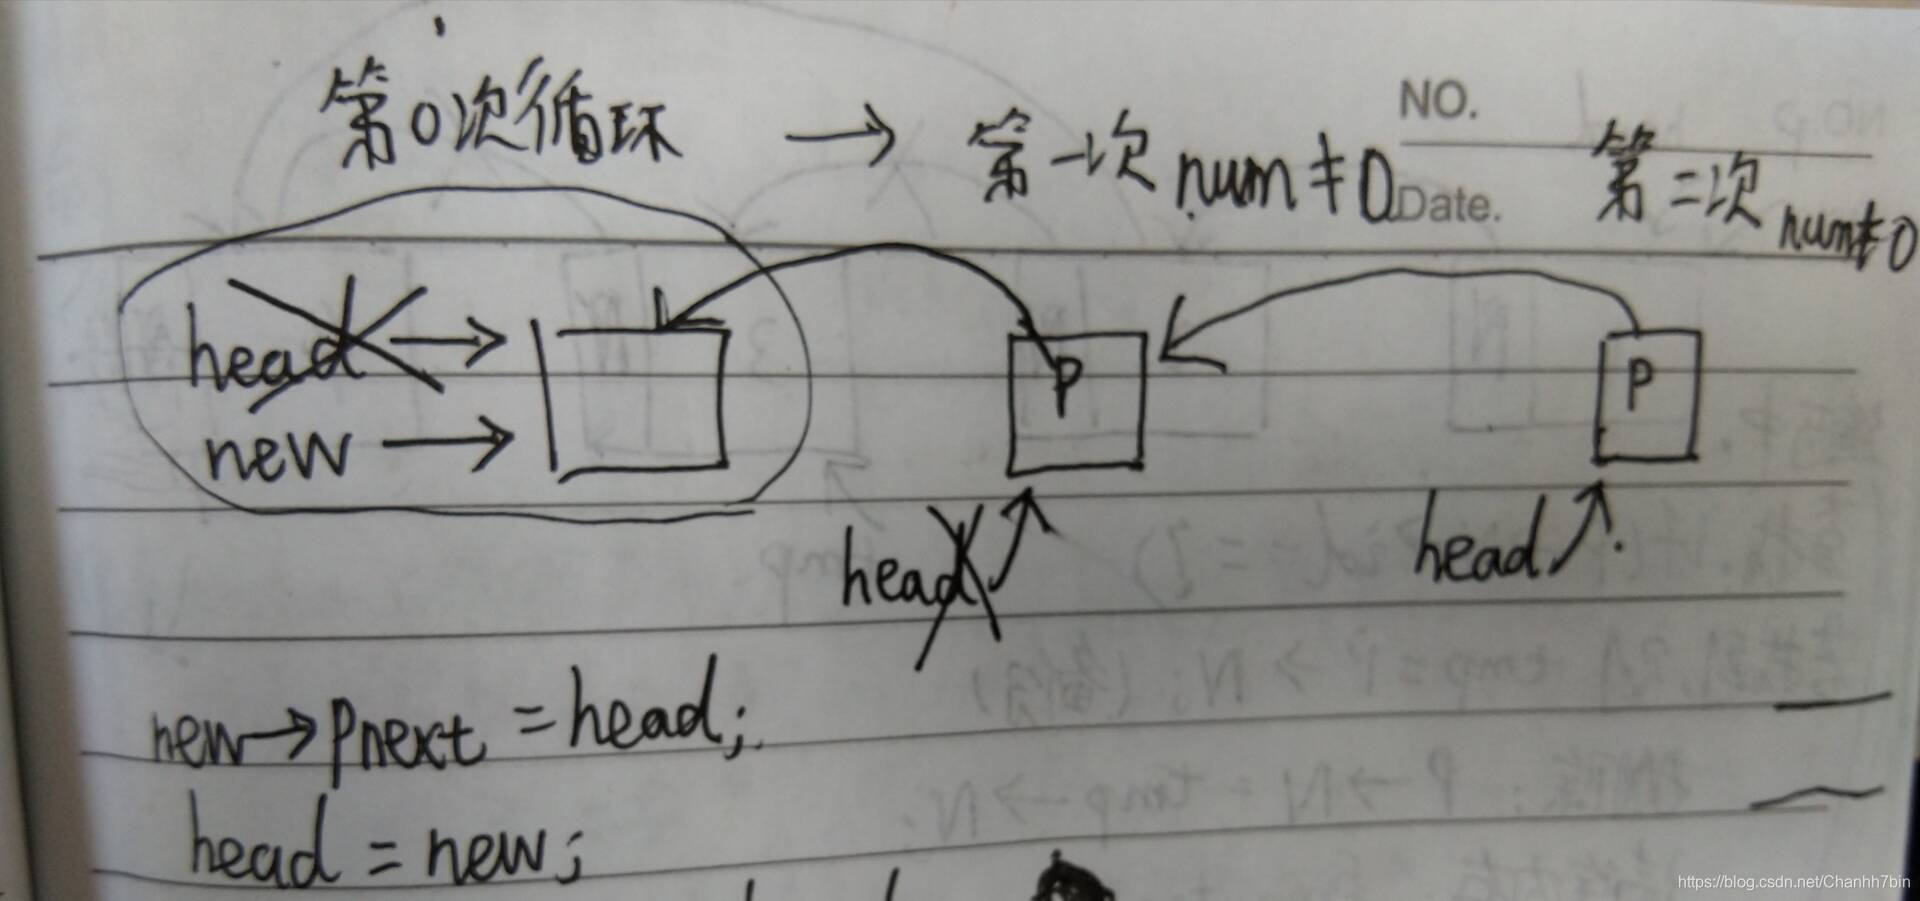 第0次循环 → 第一次 num≠0 第二次 num≠0
NO.
Date.
head →
new →
P
P
head
head
new→Pnext = head;
head = new;
https://blog.csdn.net/Chanhh7bin